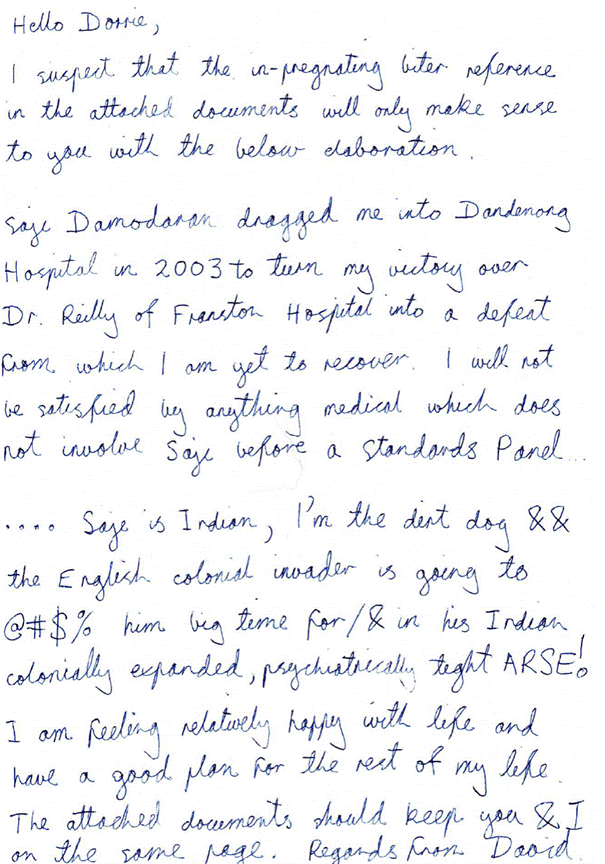 Hello Dorrie,
I suspect that the in-pregnating biter reference
in the attached documents will only make sense
to you with the below elaboration.
Saje Damodaran dragged me into Dandenong
Hospital in 2003 to turn my victory over
Dr. Reilly of Franston Hospital into a defeat
from which I am yet to recover. I will not
be satisfied by anything medical which does
not involve Saje before a Standards Panel...
.... Saje is Indian, I'm the dirt dog &&
the English colonial invader is going to
@#$% him big time for/& in his Indian
colonially expanded, psychiatrically tight ARSE!
I am feeling relatively happy with life and
have a good plan for the rest of my life.
The attached documents should keep you & I
on the same page. Regards from David.